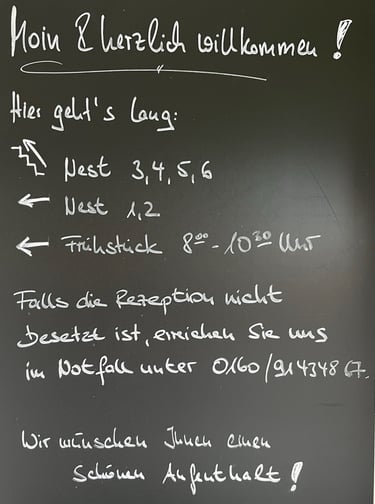 Moin & herzlich willkommen!
Hier geht's lang:
Nest 3,4,5,6
← Nest 1,2
← Frühstück 8⁰⁰ - 10³⁰ Uhr
Falls die Rezeption nicht
besetzt ist, erreichen Sie uns
im Notfall unter 0160/91434867.
Wir wünschen Ihnen einen
Schönen Aufenthalt!